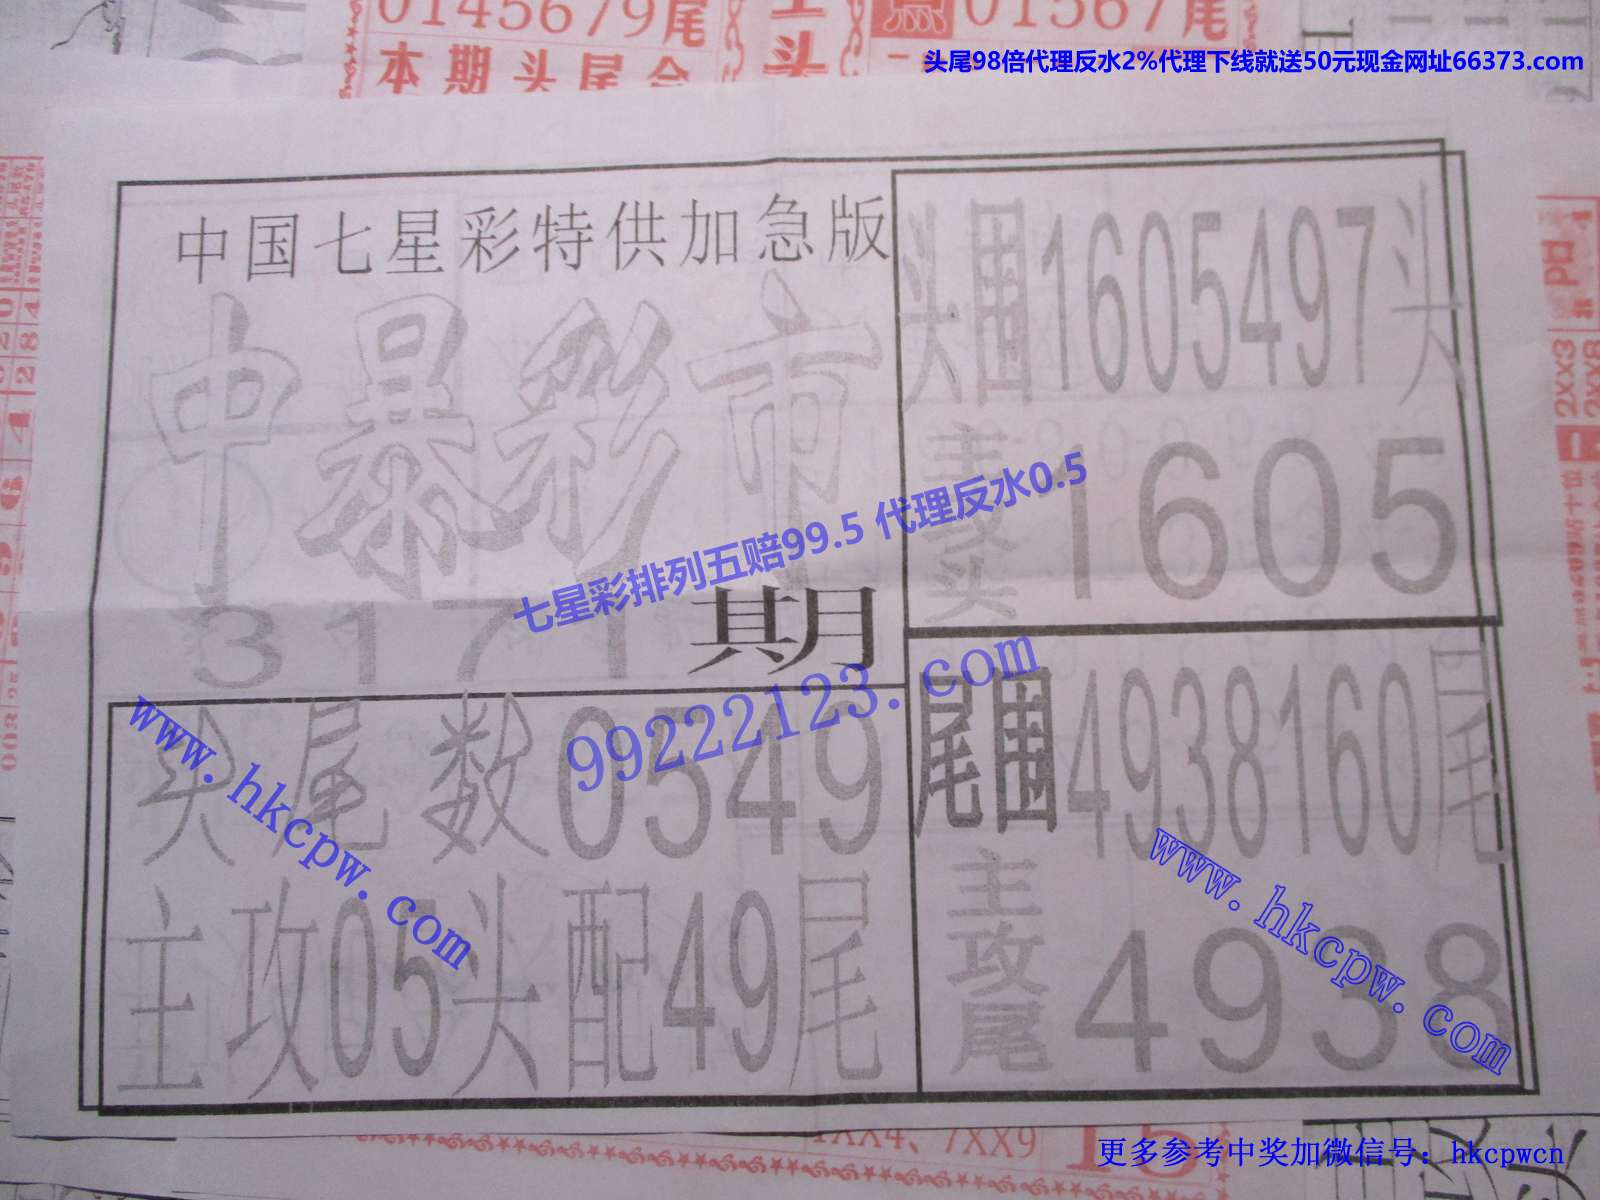 0145679尾
01567尾
本期头尾合
头尾98倍代理反水2%代理下线就送50元现金网址66373.com
中国七星彩特供加急版
中暴彩市
3171期
头围1605497头
主攻头 1605
七星彩排列五赔99.5 代理反水0.5
99222123.com
头尾数0549
主攻05头配49尾
尾围4938160尾
主攻尾 4938
www.hkcpw.com
www.hkcpw.com
1XX4、7XX9
更多参考中奖加微信号：hkcpwcn